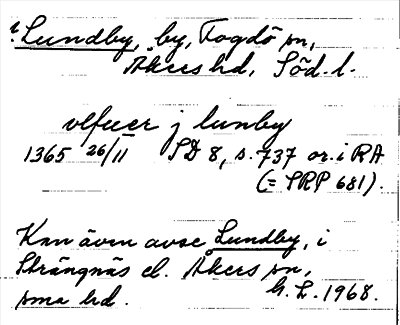 ? Lundby, by, Fogdö sn,
Åkers hd, Söd. l.
vlfuer j lunby
1365 26/11 SD 8, s. 737 or. i RA
(= SRP 681).
Kan även avse Lundby, i
Strängnäs el. Åkers sn,
sma hd. G. L. 1968.